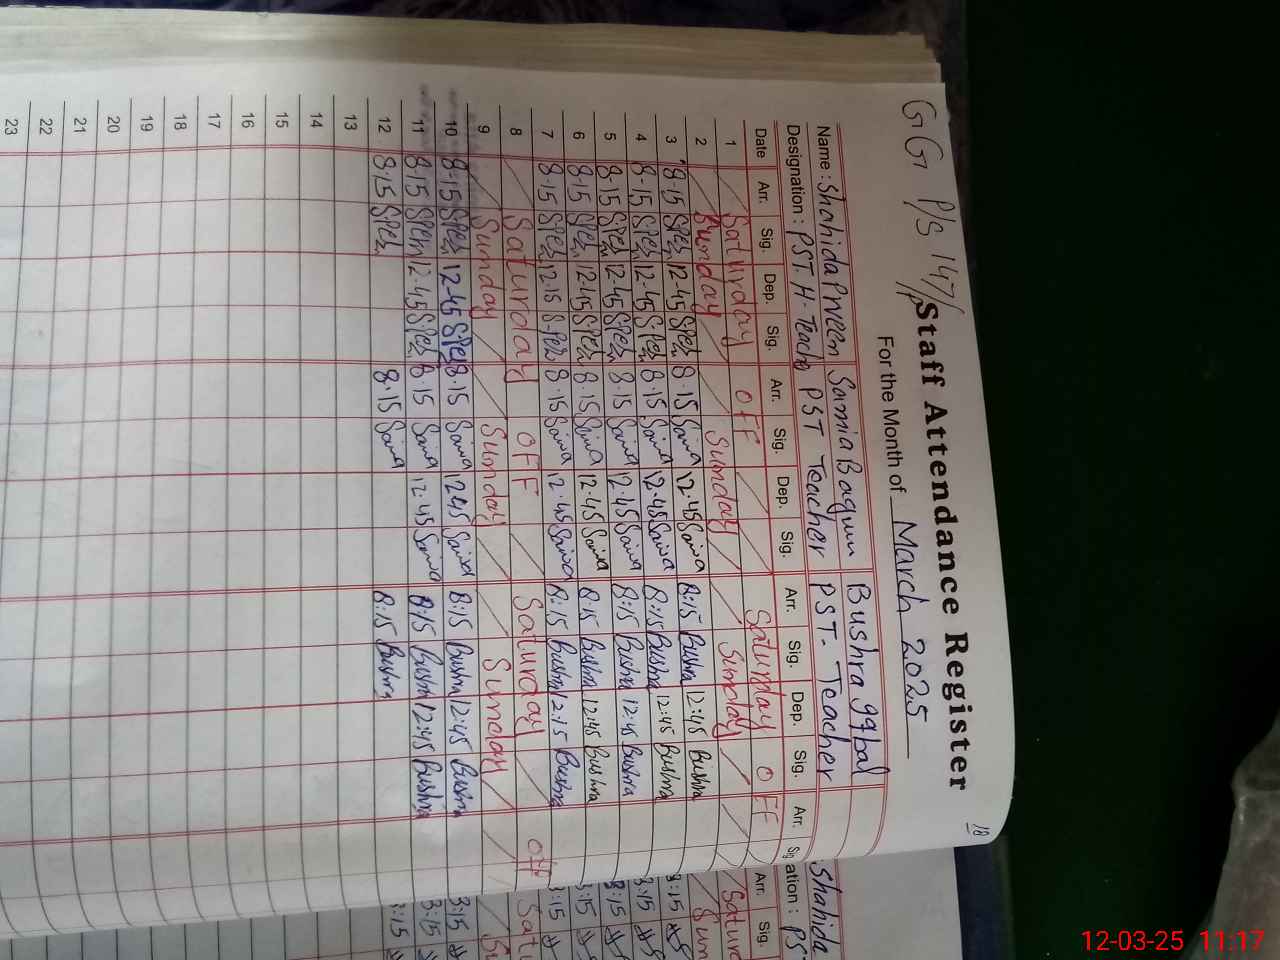 18
GG P/S 147/
Staff Attendance Register
For the Month of March 2025
Name : Shahida Prveen Samia Baqum Bushra Iqbal
Designation : PST. H- Teacher PST Teacher PST- Teacher
Date Arr. Sig. Dep. Sig. Arr. Sig. Dep. Sig. Arr. Sig. Dep. Sig. Arr. Sig
1 Saturday OFF Saturday OFF
2 Sunday Sunday Sunday
3 8-15 SPer 12-45 SPer 8.15 Saiva 12.45 Saiva 8:15 Bushra 12:45 Bushra
4 8-15 SPer 12-45 SPer 8.15 Saiva 12.45 Saiva 8:15 Bushra 12:45 Bushra
5 8-15 SPer 12-45 SPer 8.15 Saiva 12.45 Saiva 8:15 Bushra 12:45 Bushra
6 8-15 SPer 12-45 SPer 8.15 Saiva 12.45 Saiva 8:15 Bushra 12:45 Bushra
7 8-15 SPer 12-15 SPer 8.15 Saiva 12.45 Saiva 8:15 Bushra 12:15 Bushra
8 Saturday OFF Saturday off
9 Sunday Sunday Sunday
10 8-15 SPer 12-45 SPer 8.15 Saiva 12.45 Saiva 8:15 Bushra 12:45 Bushra
11 8-15 SPer 12-45 SPer 8.15 Saiva 12.45 Saiva 8:15 Bushra 12:45 Bushra
12 8-15 SPer 8.15 Saiva 8:15 Bushra
13
14
15
16
17
18
19
20
21
22
23
Shahida
ation : PS
Arr. Sig.
12-03-25 11:17